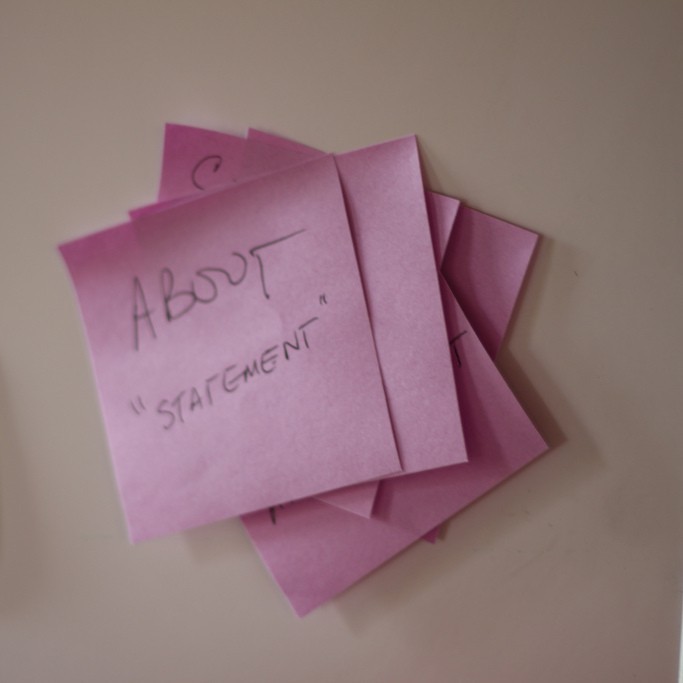 ABOUT
"STATEMENT"